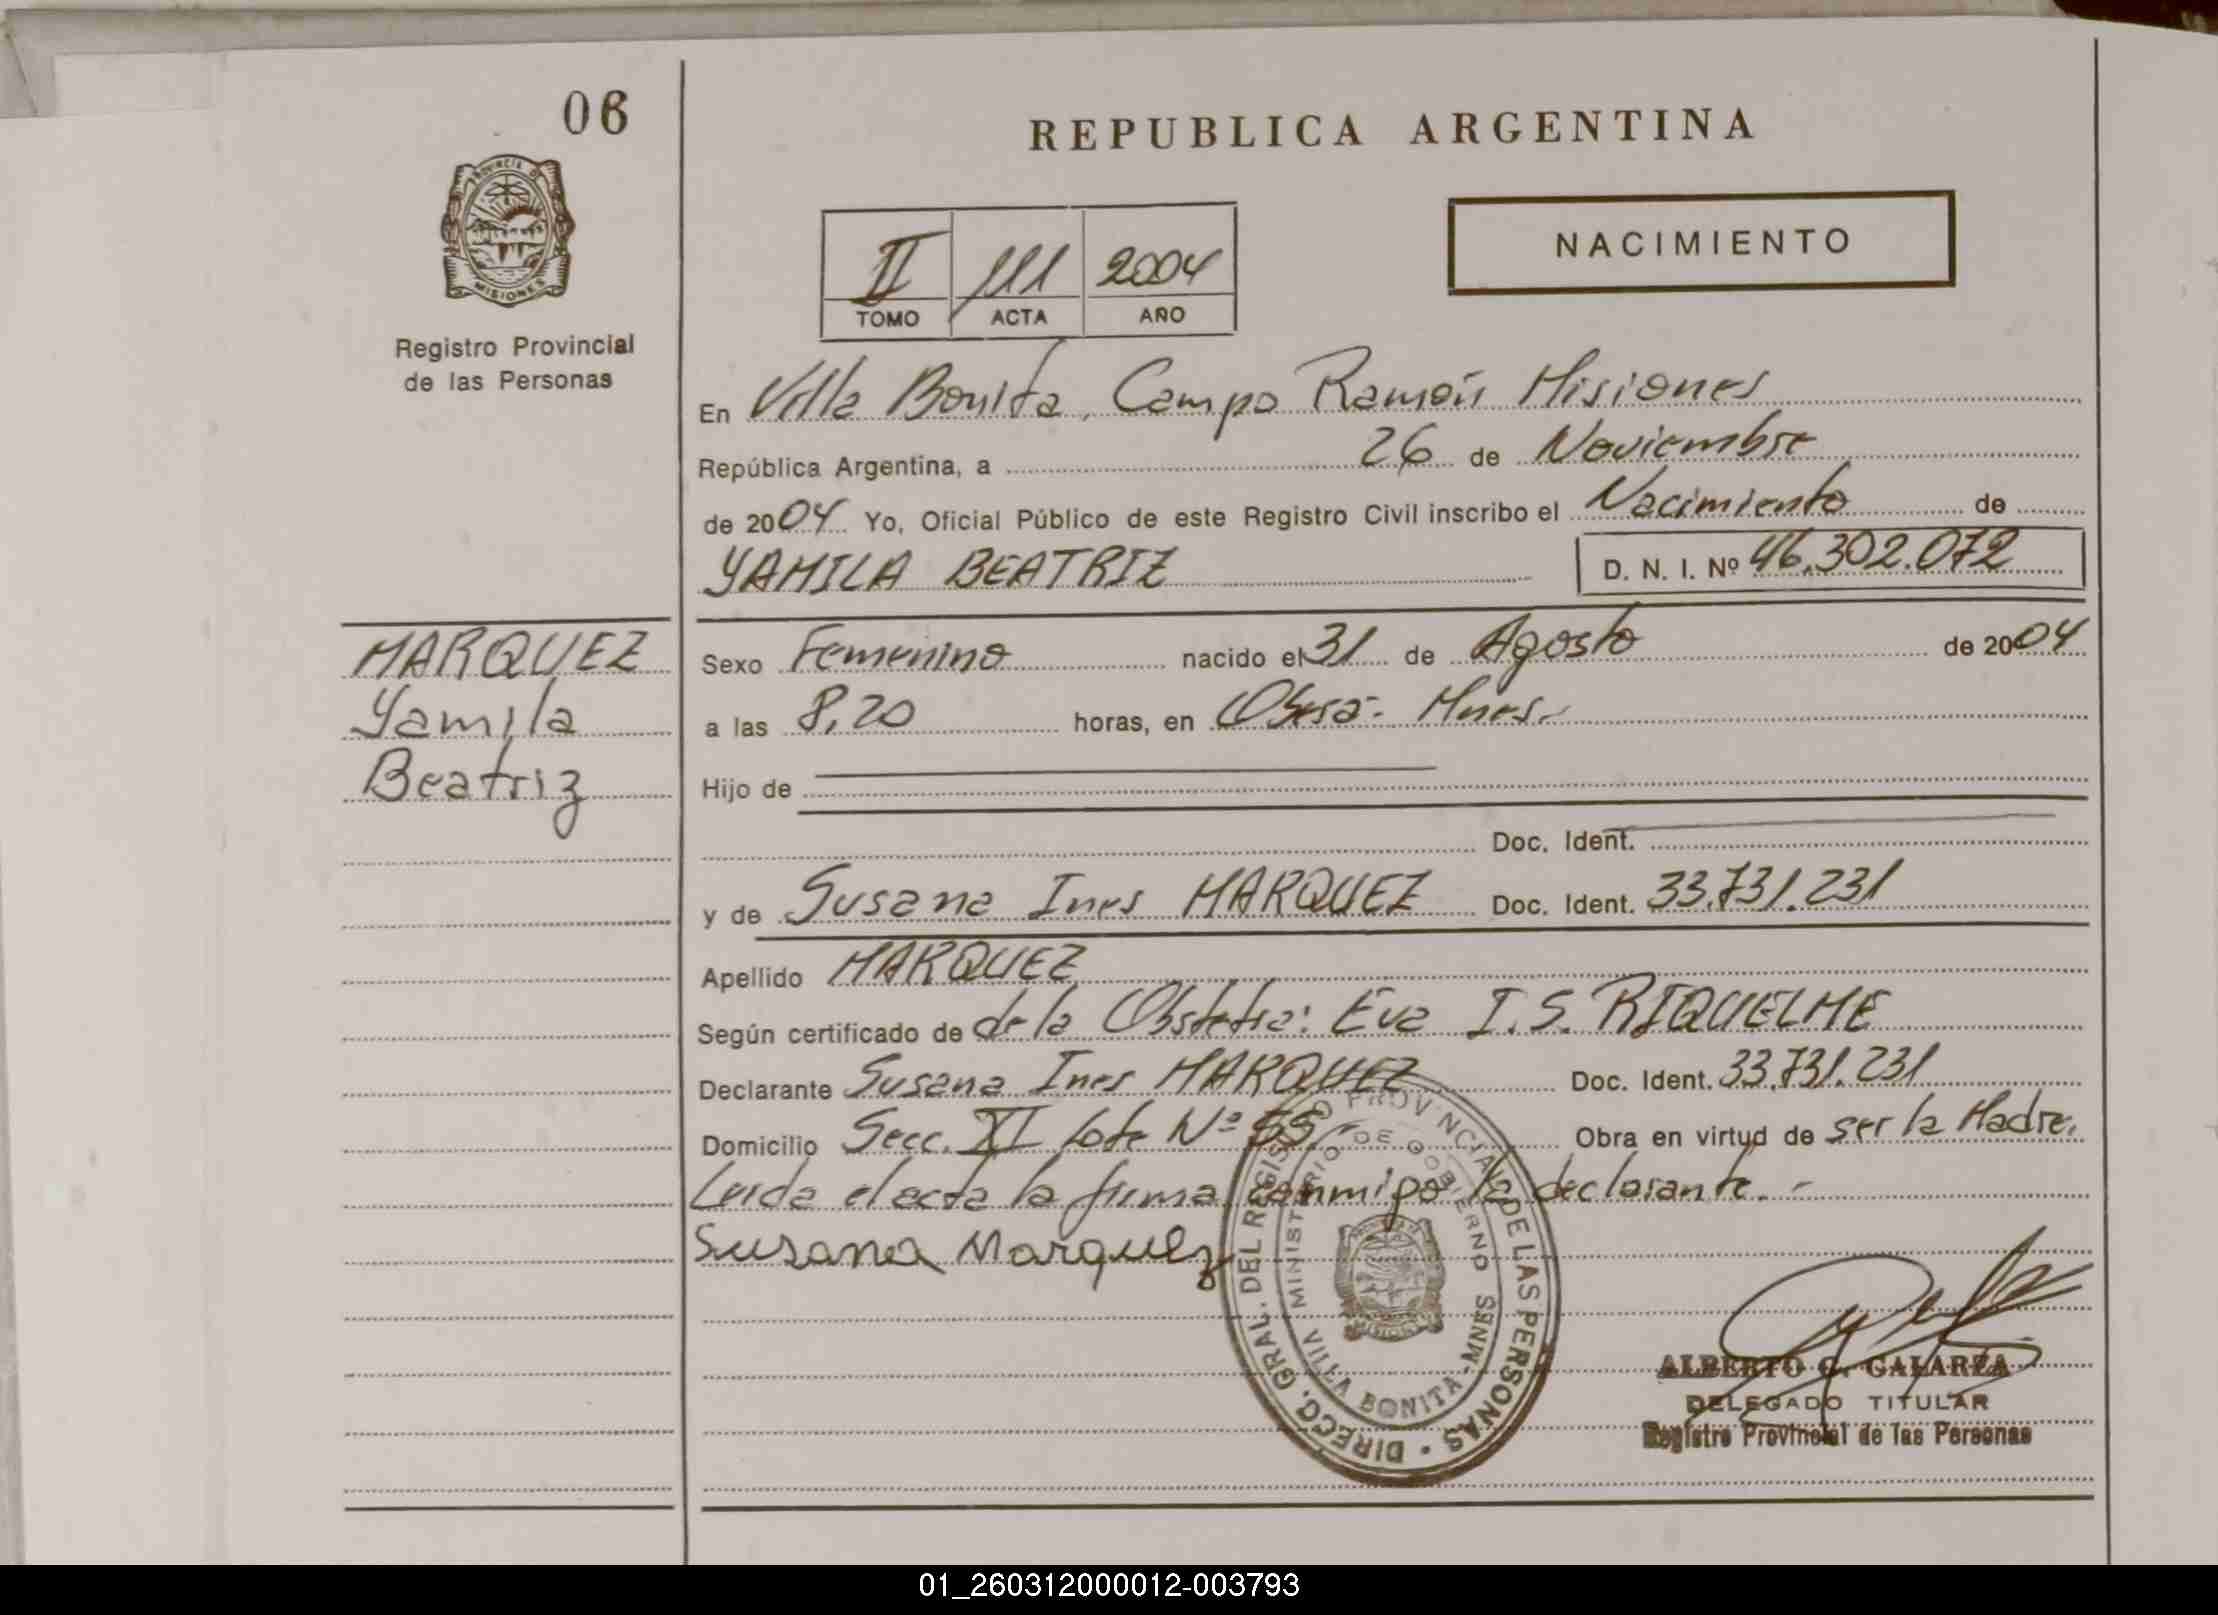 06
PROVINCIA DE
MISIONES
Registro Provincial
de las Personas
REPUBLICA ARGENTINA
II 111 2004
TOMO ACTA AÑO
NACIMIENTO
En Villa Bonita, Campo Ramón Misiones
República Argentina, a 26 de Noviembre
de 2004 Yo, Oficial Público de este Registro Civil inscribo el Nacimiento de
YAMILA BEATRIZ D. N. I. Nº 46.302.072
MARQUEZ
Yamila
Beatriz
Sexo Femenino nacido el 31 de Agosto de 2004
a las 8,20 horas, en Oberá- Mnes.-
Hijo de
Doc. Ident.
y de Susana Ines MARQUEZ Doc. Ident. 33.731.231
Apellido MARQUEZ
Según certificado de de la Obstetra: Eva I. S. RIQUELME
Declarante Susana Ines MARQUEZ Doc. Ident. 33.731.231
Domicilio Secc. XI Lote Nº 55 Obra en virtud de ser la Madre.
Leida el acta la firma conmigo la declarante.-
Susana Marquez
DIRECC. GRAL. DEL REGISTRO PROVINCIAL DE LAS PERSONAS
MINISTERIO DE GOBIERNO
VILLA BONITA - MNES
ALBERTO G. GALARZA
DELEGADO TITULAR
Registro Provincial de las Personas
01_260312000012-003793